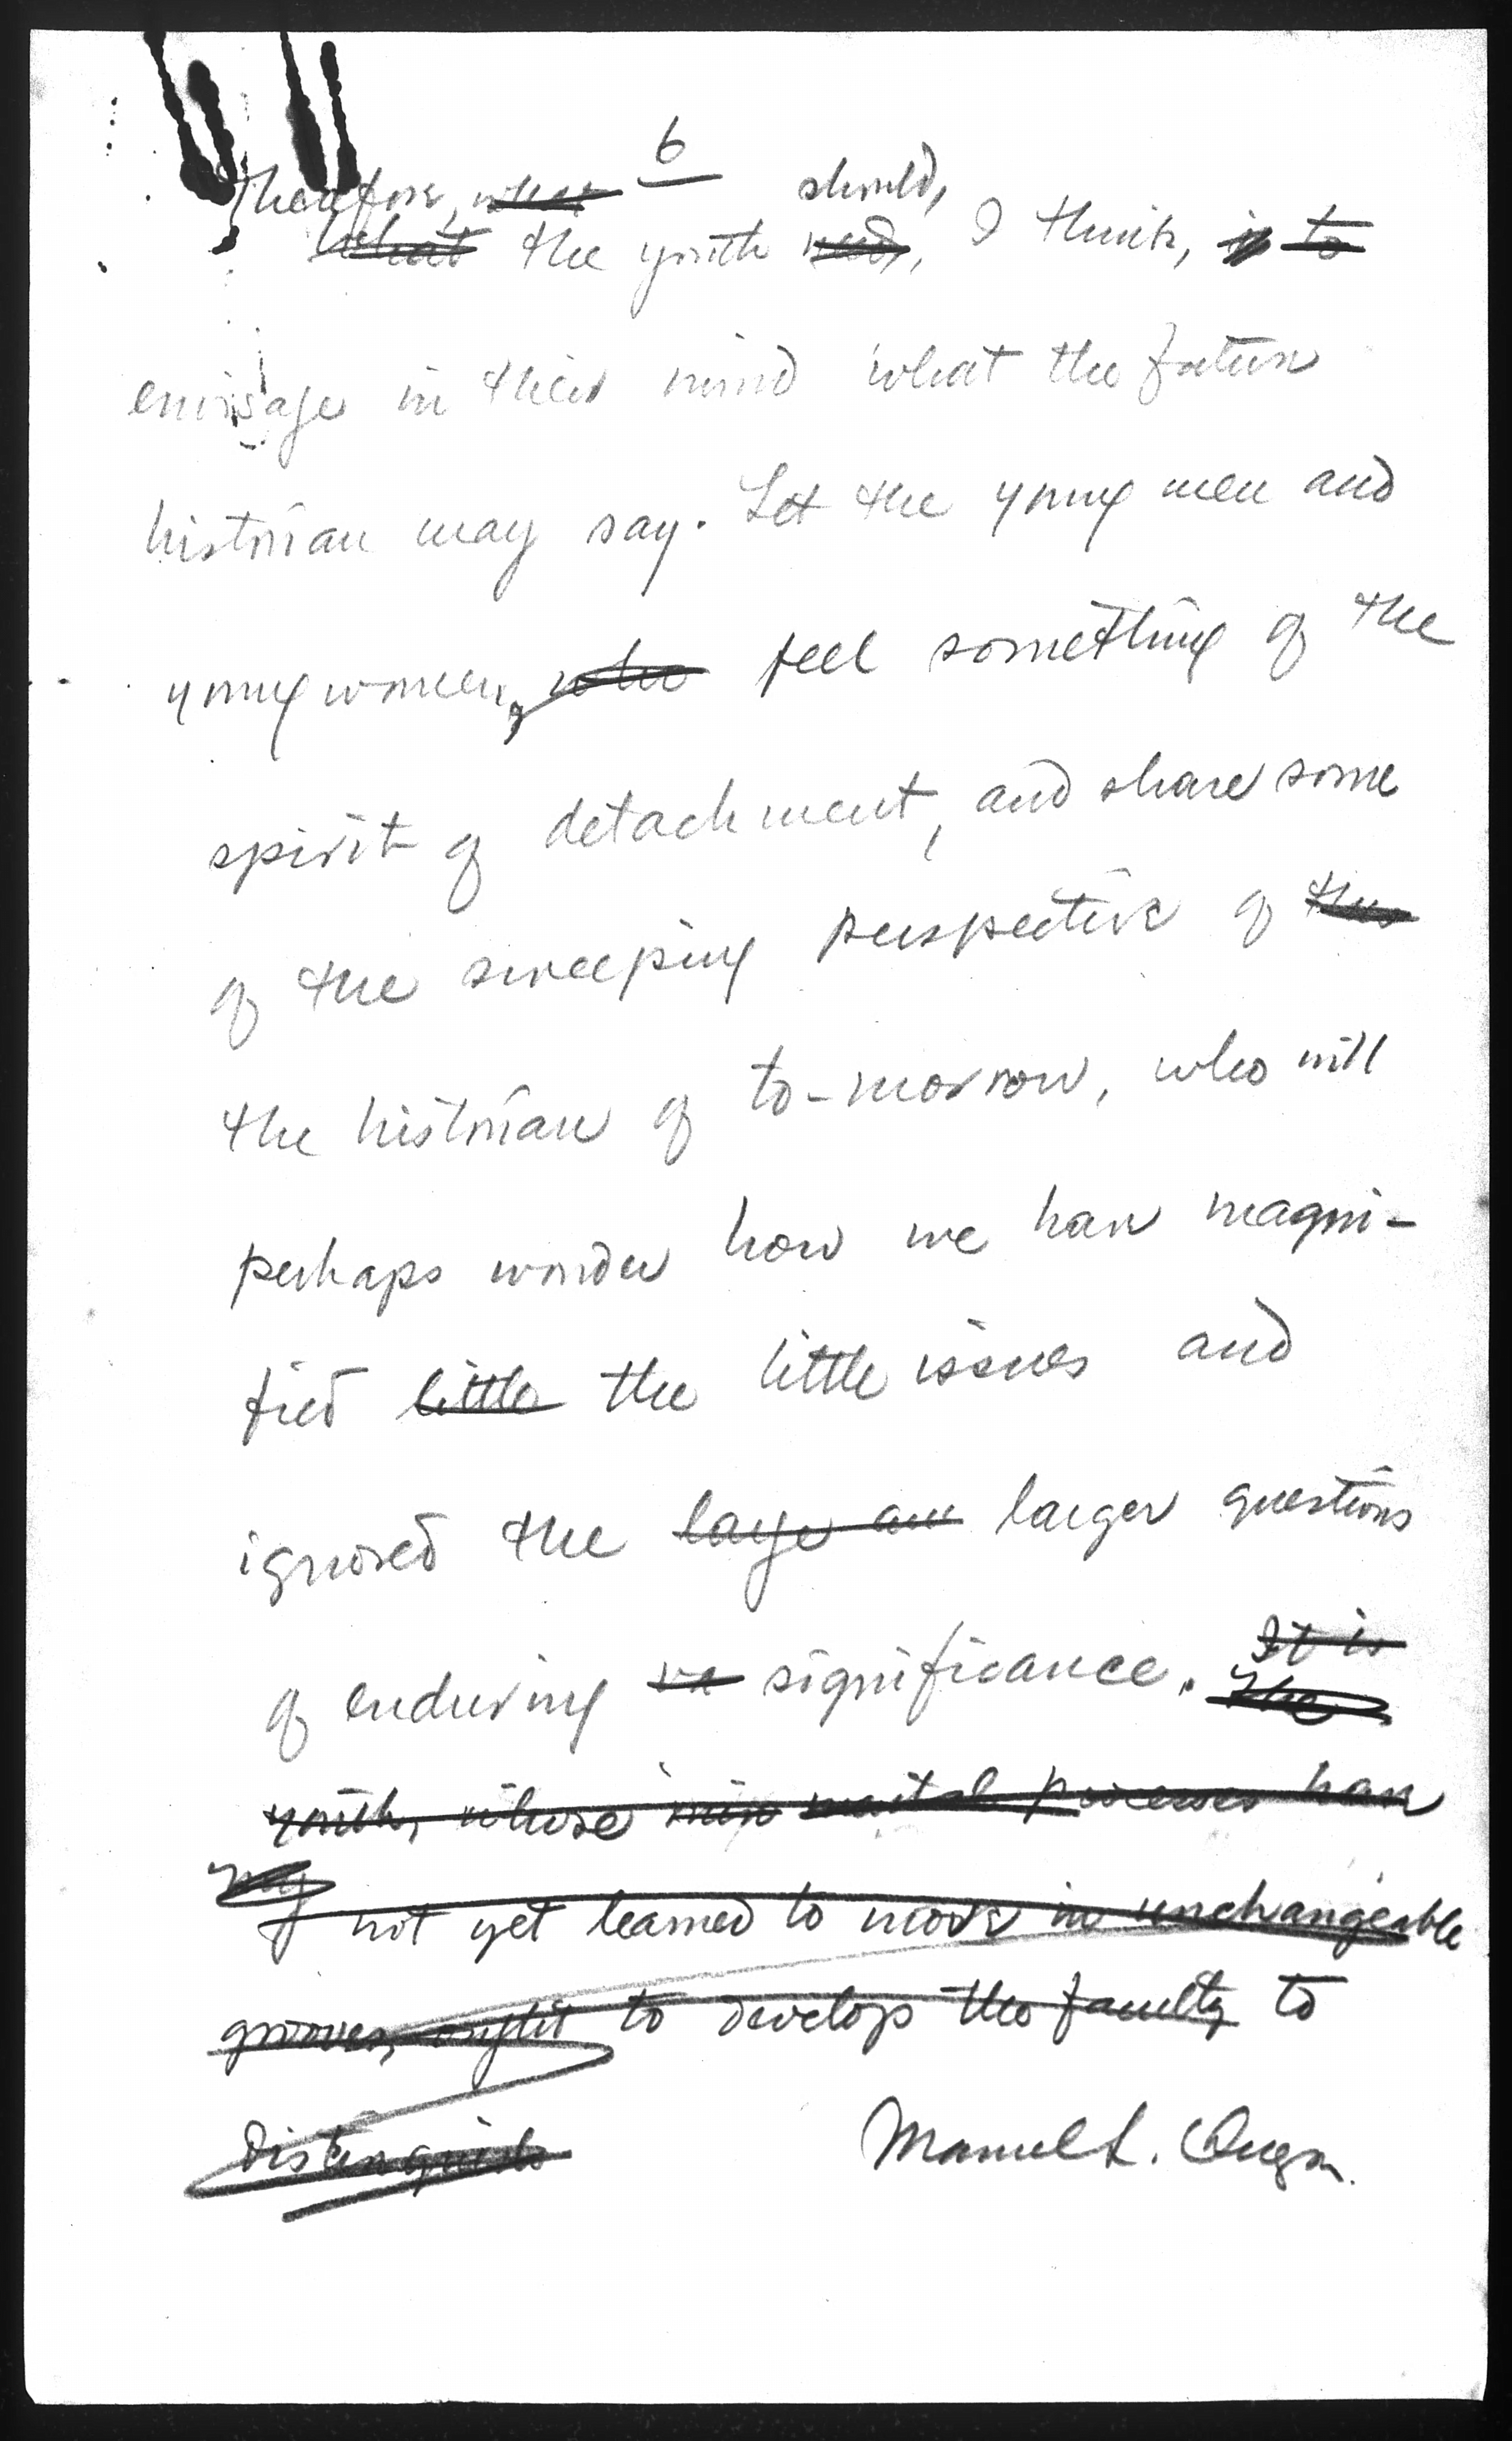 6
Therefore, what should,
What the youth need, I think, is to
envisage in their mind what the future
historian may say. Let the young men and
young women, who feel something of the
spirit of detachment, and share some
of the sweeping perspective of this
the historian of to-morrow, who will
perhaps wonder how we have magni-
fied little the little issues and
ignored the large and larger questions
of enduring va significance. It is
The
youth, whose min mental processes have
not yet learned to move in unchangeable
grooves, ought to develop the faculty to
distinguish
Manuel L. Quezon.